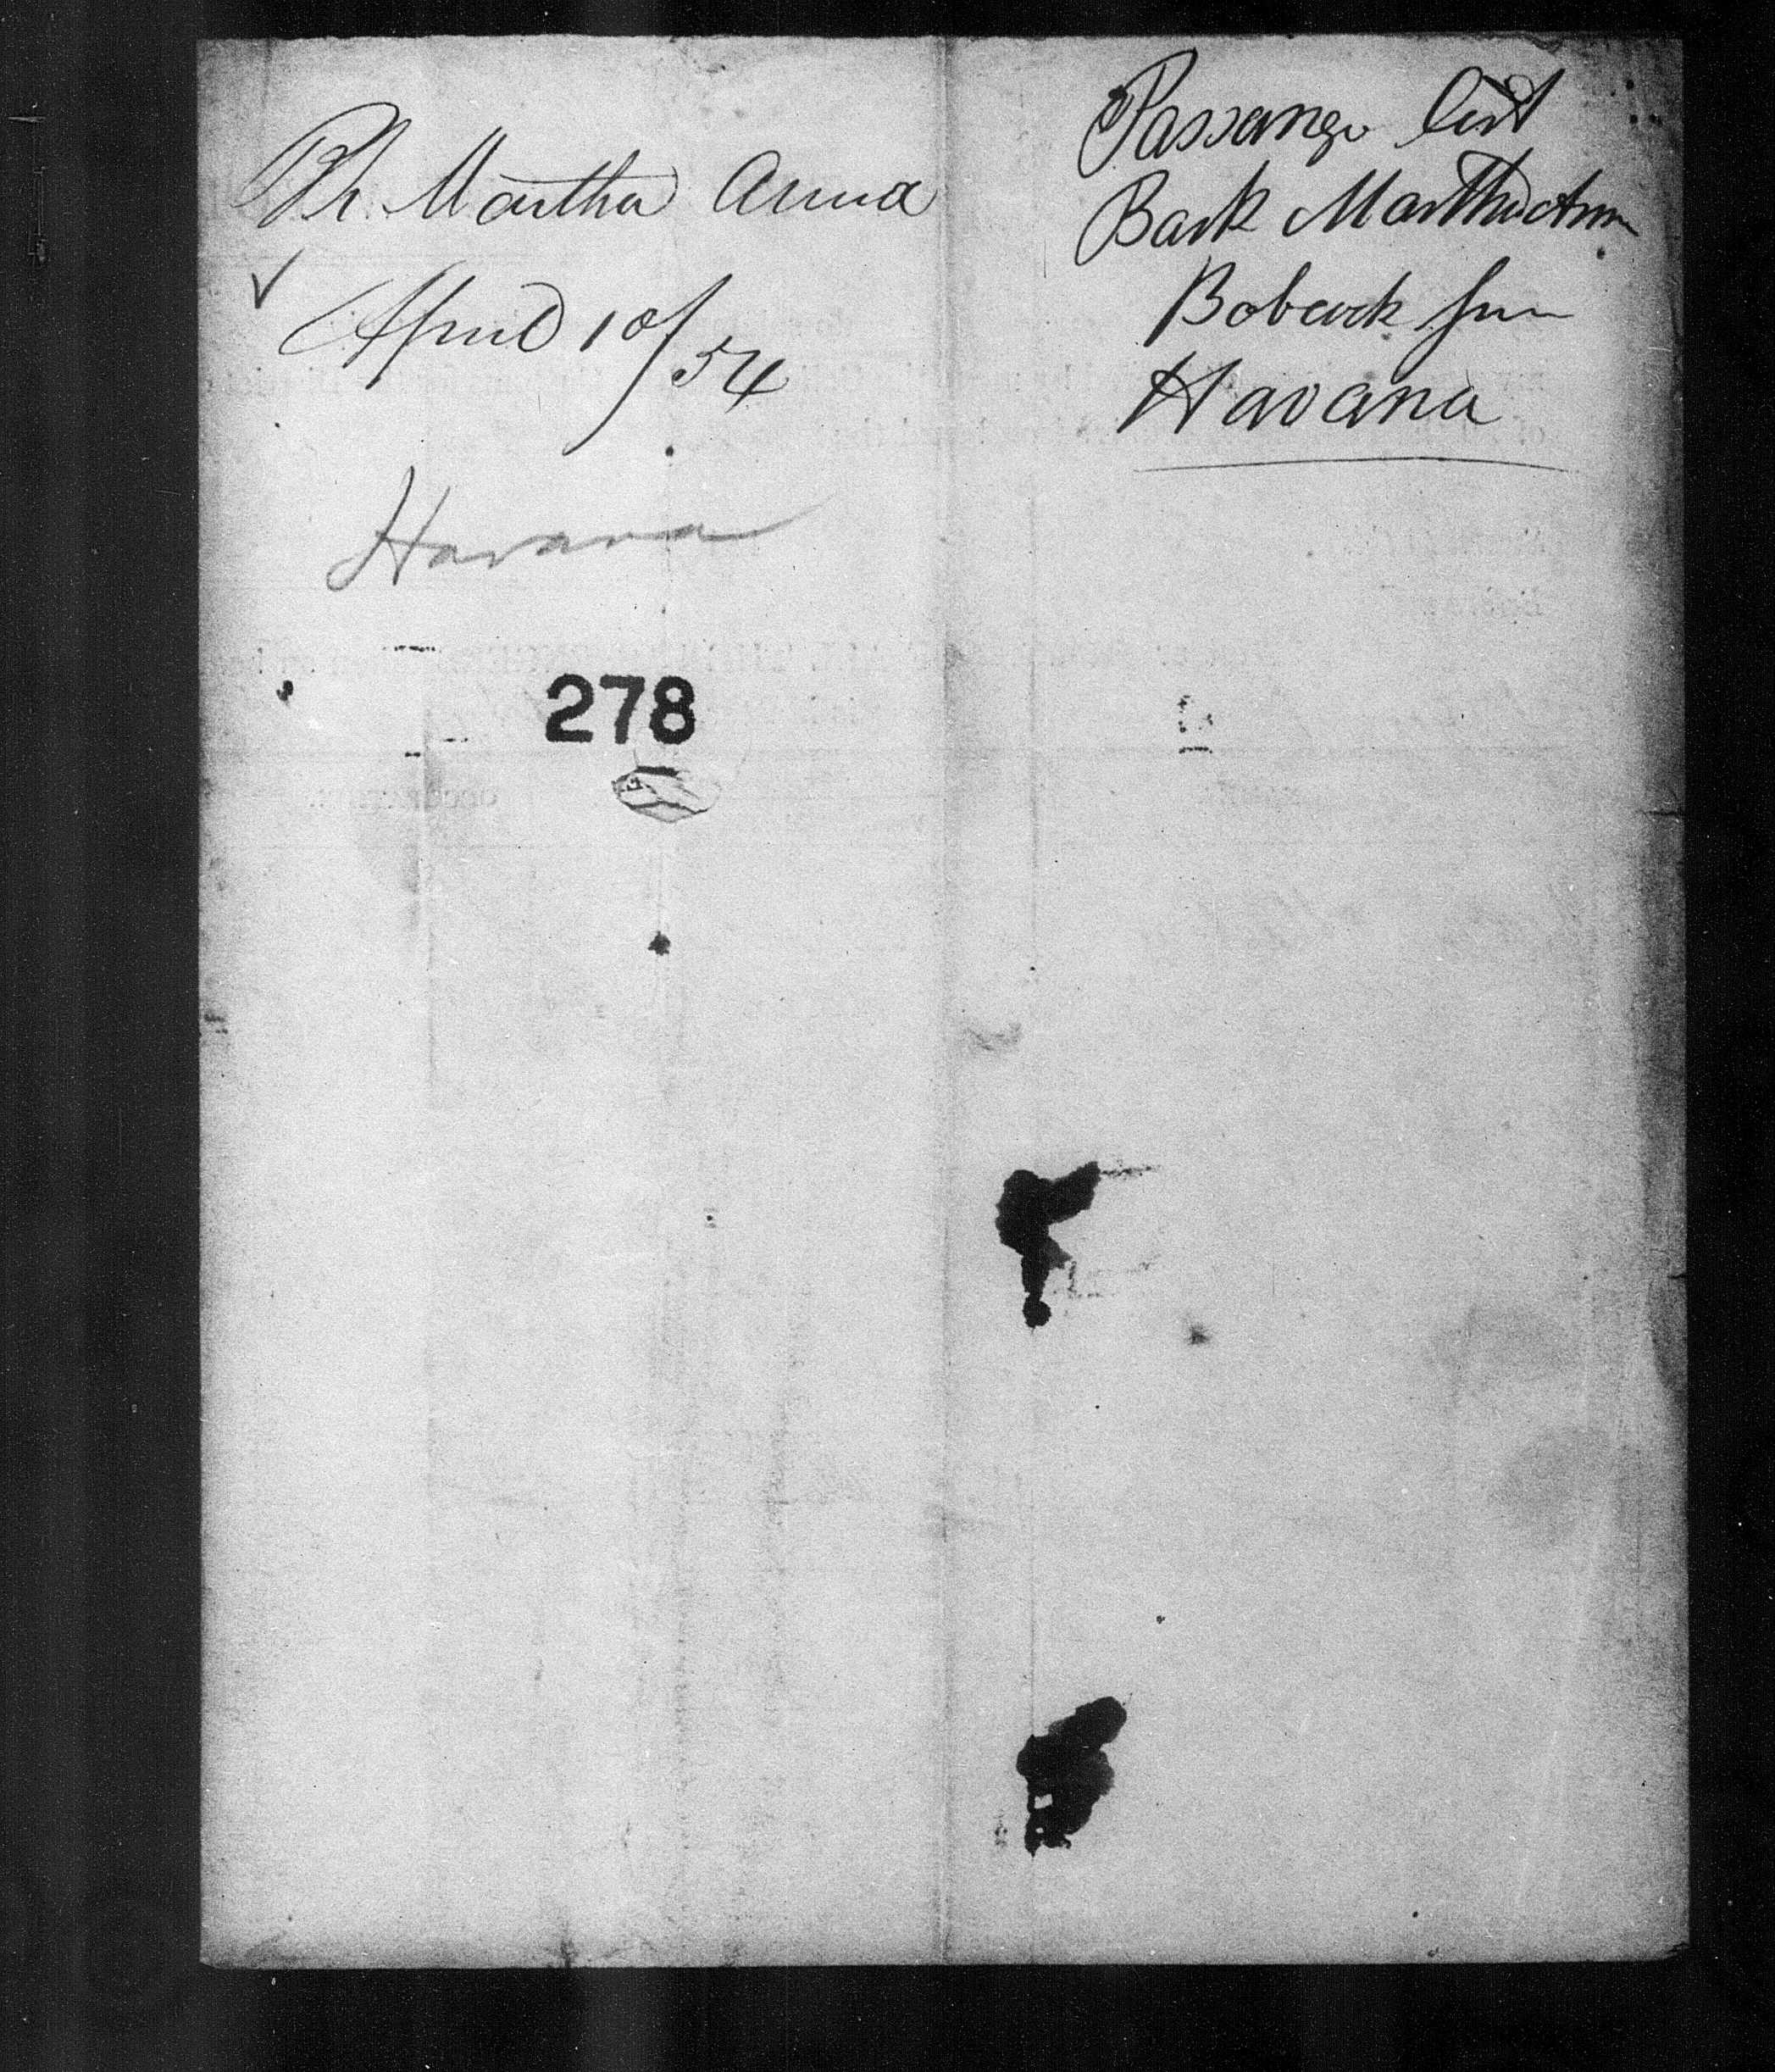 Bk. Martha Anna
✓
April 10/54
Havana
278
Passange list
Bark Martha Ann
Bobcock fm
Havana